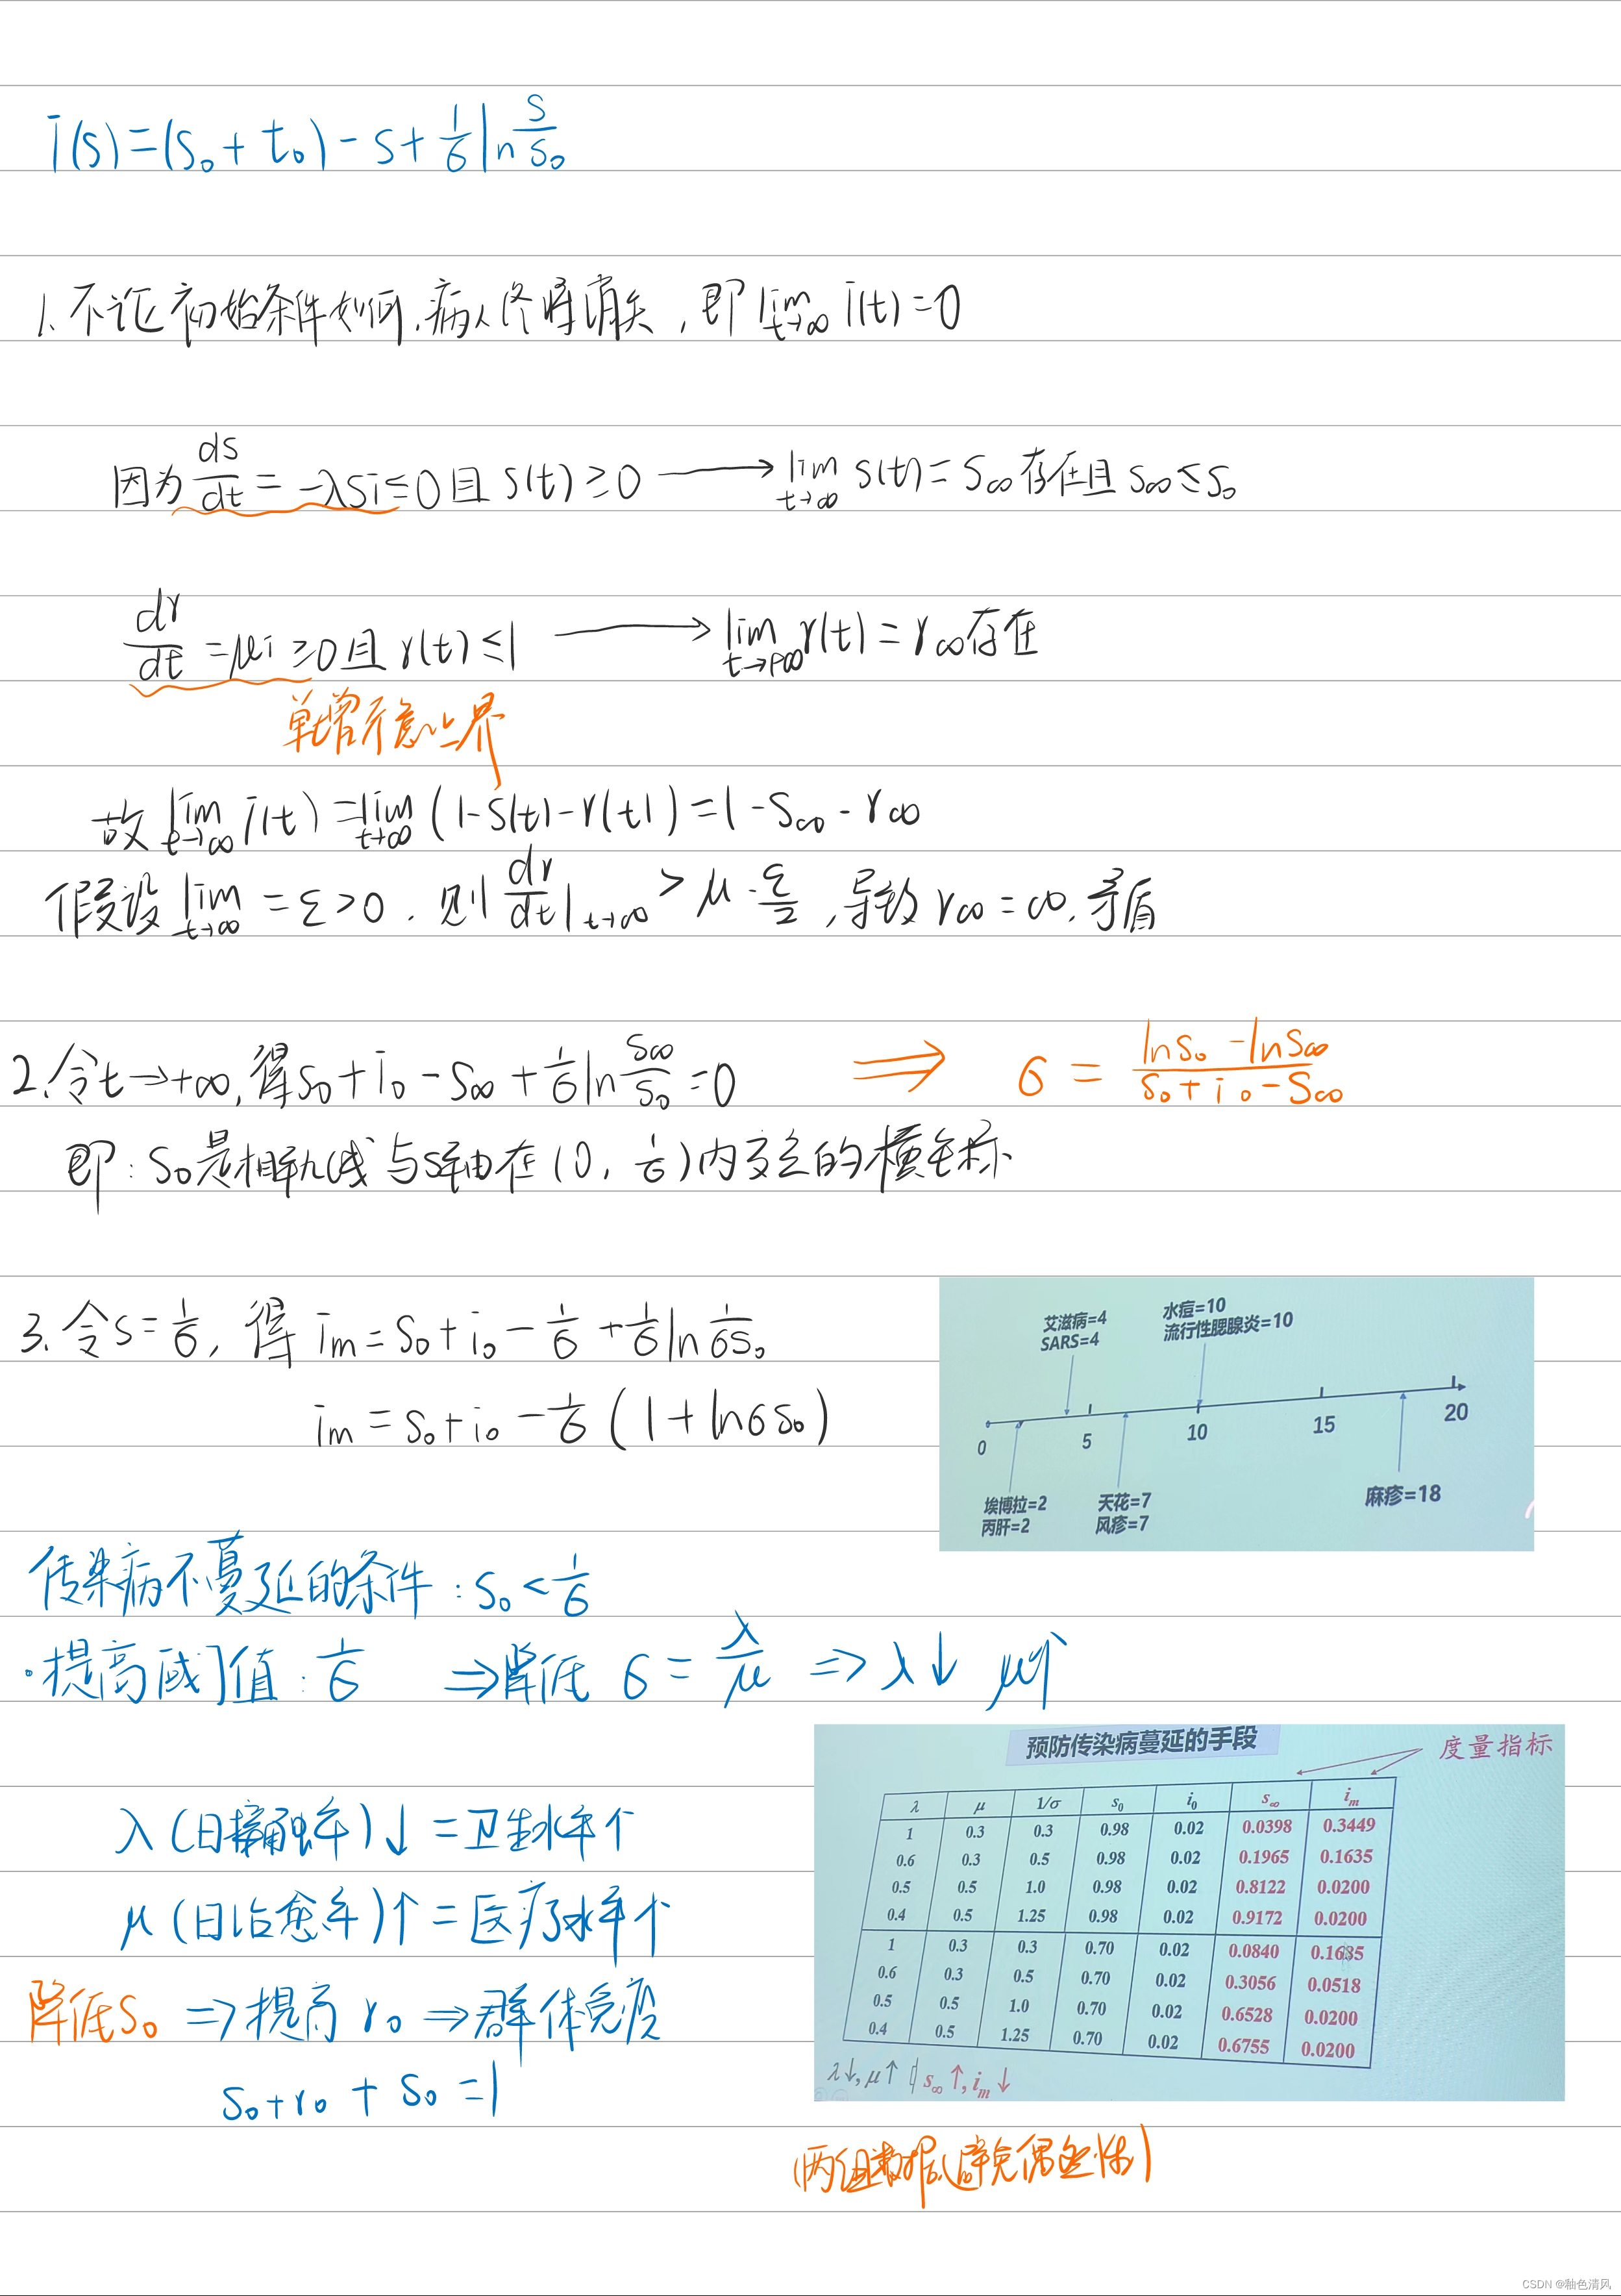 i(s)=(s₀+t₀)-s+1/6 ln s/s₀
1. 不论初始条件如何,病人终将消失,即 lim t→∞ i(t)=0
因为 ds/dt = -λsi≤0且s(t)≥0 → lim t→∞ s(t)=s∞存在且s∞≤s₀
dr/dt =μi≥0且r(t)≤1 → lim t→+∞ r(t)=r∞存在
单增 上界
故 lim t→∞ i(t)=lim t→∞ (1-s(t)-r(t))=1-s∞-r∞
假设 lim t→∞ =ε>0,则 dr/dt|t→∞ > μ·ε/2,导致r∞=∞,矛盾
2.令t→+∞,得s₀+i₀-s∞+1/6 ln s∞/s₀=0 ⇒ 6= (ln s₀-ln s∞)/(s₀+i₀-s∞)
即:s₀是相轨线与s轴在(0,1/6)内交点的横坐标
3.令s=1/6,得 im=s₀+i₀-1/6+1/6 ln 1/6s₀
im=s₀+i₀-1/6(1+ln6s₀)
艾滋病=4
SARS=4
水痘=10
流行性腮腺炎=10
0 5 10 15 20
埃博拉=2
丙肝=2
天花=7
风疹=7
麻疹=18
传染病不蔓延的条件:s₀<1/6
·提高阈值:1/6 ⇒降低 6=λ/μ ⇒λ↓ μ↑
预防传染病蔓延的手段
度量指标
λ μ 1/σ s₀ i₀ s∞ im
1 0.3 0.3 0.98 0.02 0.0398 0.3449
0.6 0.3 0.5 0.98 0.02 0.1965 0.1635
0.5 0.5 1.0 0.98 0.02 0.8122 0.0200
0.4 0.5 1.25 0.98 0.02 0.9172 0.0200
1 0.3 0.3 0.70 0.02 0.0840 0.1685
0.6 0.3 0.5 0.70 0.02 0.3056 0.0518
0.5 0.5 1.0 0.70 0.02 0.6528 0.0200
0.4 0.5 1.25 0.70 0.02 0.6755 0.0200
λ↓,μ↑ s∞↑,im↓
λ(日接触率)↓=卫生水平↑
μ(日治愈率)↑=医疗水平↑
降低s₀ ⇒提高 r₀ ⇒群体免疫
s₀+r₀+s₀=1
(两组数据,避免偶然性)
CSDN @釉色清风